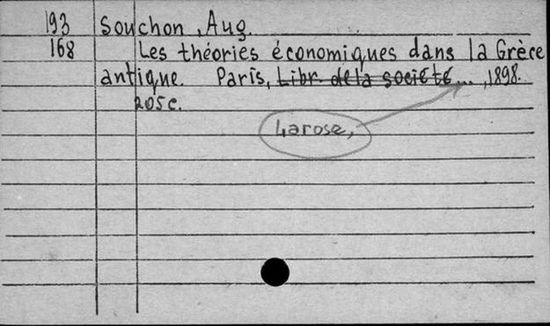 193 Souchon, Aug.
168 Les théories économiques dans la Grèce
antique. Paris, Libr. de la société..., 1898.
205 c.
Larose,